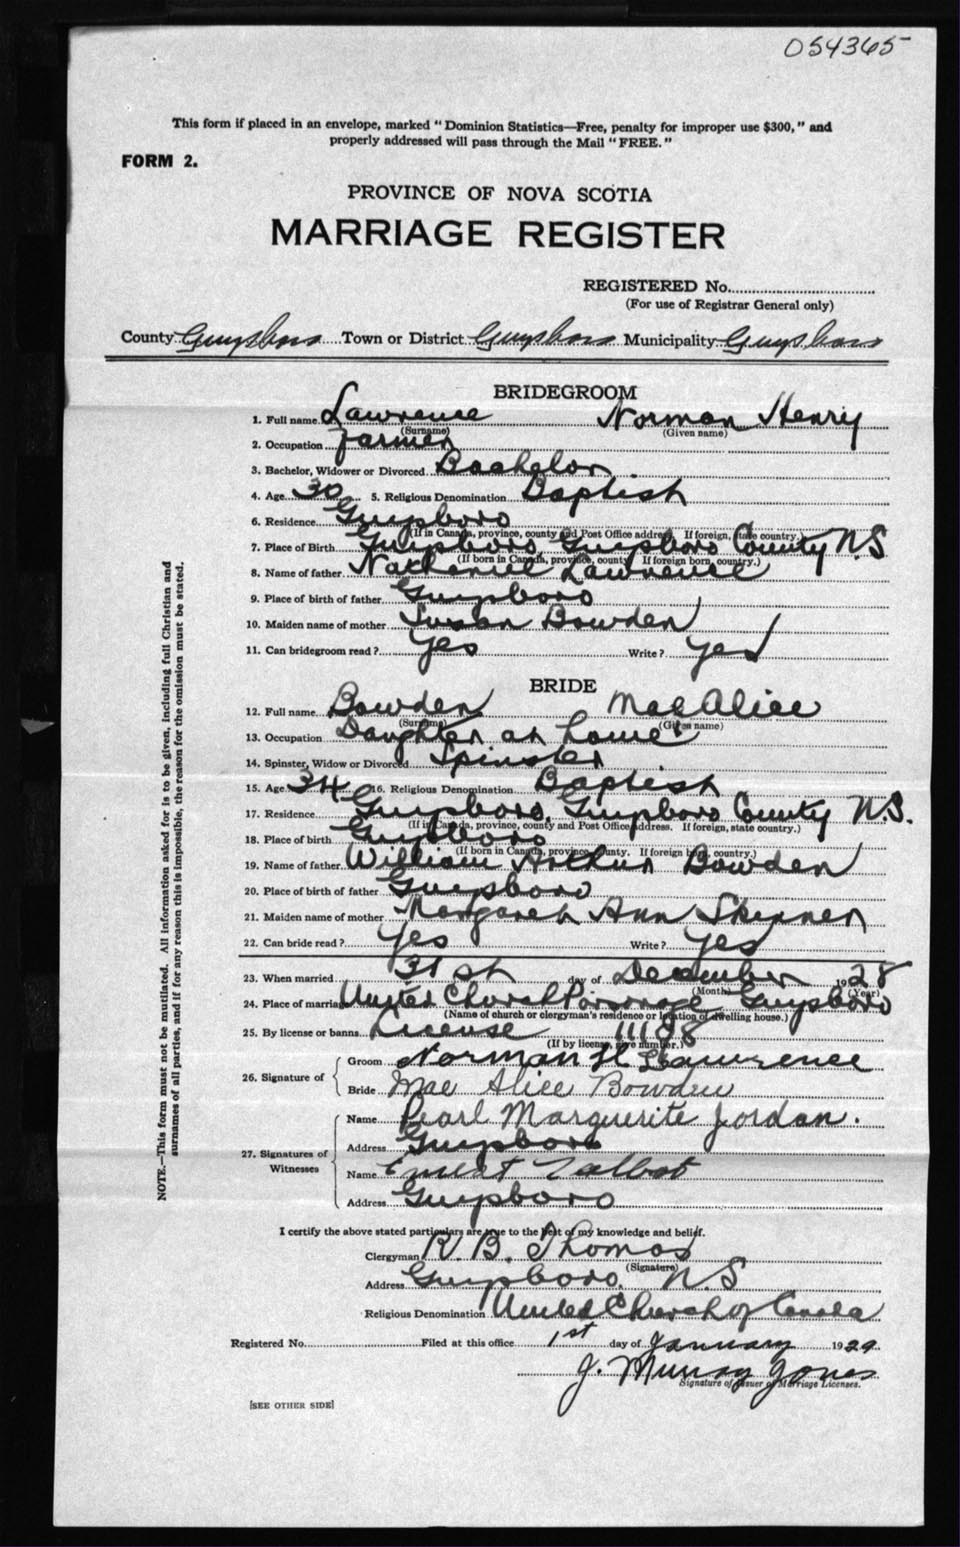 054365
This form if placed in an envelope, marked "Dominion Statistics—Free, penalty for improper use $300," and
properly addressed will pass through the Mail "FREE."
FORM 2.
PROVINCE OF NOVA SCOTIA
MARRIAGE REGISTER
REGISTERED No.
(For use of Registrar General only)
County Guysboro Town or District Guysboro Municipality Guysboro
BRIDEGROOM
1. Full name Lawrence Norman Henry
(Surname) (Given name)
2. Occupation farmer
3. Bachelor, Widower or Divorced Bachelor
4. Age 30 5. Religious Denomination Baptist
6. Residence Guysboro
(If in Canada, province, county and Post Office address. If foreign, state country.)
7. Place of Birth Guysboro, Guysboro County NS
(If born in Canada, province, county. If foreign born, country.)
8. Name of father Nathaniel Lawrence
9. Place of birth of father Guysboro
10. Maiden name of mother Susan Bowden
11. Can bridegroom read? Yes Write? Yes
BRIDE
12. Full name Bowden Mae Alice
(Surname) (Given name)
13. Occupation Daughter at home
14. Spinster, Widow or Divorced Spinster
15. Age 34 16. Religious Denomination Baptist
17. Residence Guysboro, Guysboro County N.S.
(If in Canada, province, county and Post Office address. If foreign, state country.)
18. Place of birth Guysboro
(If born in Canada, province, county. If foreign born, country.)
19. Name of father William Arthur Bowden
20. Place of birth of father Guysboro
21. Maiden name of mother Margaret Ann Skinner
22. Can bride read? Yes Write? Yes
23. When married 31st day of December 1928
(Month) (Year)
24. Place of marriage United Church Parsonage Guysboro
(Name of church or clergyman's residence or location of dwelling house.)
25. By license or banns License 11188
(If by license, give number.)
26. Signature of
Groom Norman H Lawrence
Bride Mae Alice Bowden
27. Signatures of Witnesses
Name Pearl Marguerite Jordan.
Address Guysboro
Name Ernest Talbot
Address Guysboro
I certify the above stated particulars are true to the best of my knowledge and belief.
Clergyman R. B. Thomas
(Signature)
Address Guysboro, N.S
Religious Denomination United Church of Canada
Registered No. Filed at this office 1st day of January 1929.
J. Murray Jones
Signature of Issuer of Marriage Licenses.
[SEE OTHER SIDE]
NOTE.—This form must not be mutilated. All information asked for is to be given, including full Christian and
surnames of all parties, and if for any reason this is impossible, the reason for the omission must be stated.